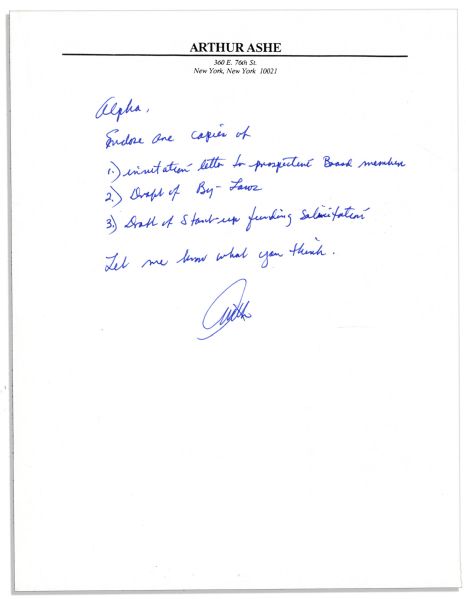 ARTHUR ASHE
360 E. 76th St.
New York, New York 10021
Alpha,
Enclose are copies of
1.) invitation letter to prospective Board member
2.) Draft of By-Laws
3.) Draft of Start-up funding Solicitation
Let me know what you think.
Arthur